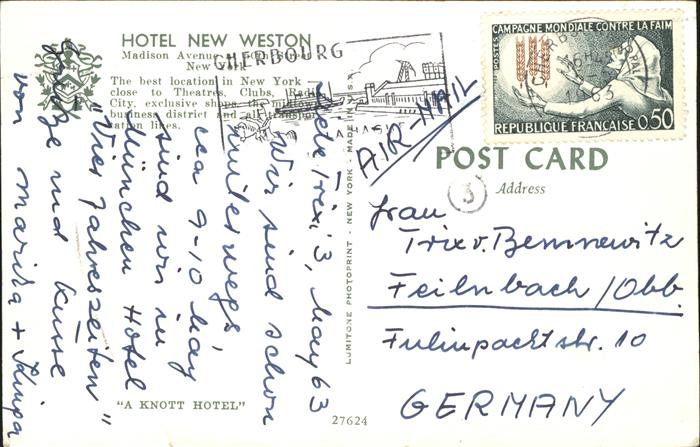 HOTEL NEW WESTON
Madison Avenue
New York
The best location in New York —
close to Theatres, Clubs, Radio
City, exclusive shops, the midtown
business district and all transpor-
tation lines.
CHERBOURG
1963
CAMPAGNE MONDIALE CONTRE LA FAIM
POSTES
REPUBLIQUE FRANÇAISE
0,50
AIR-MAIL
POST CARD
Address
3
Frau
Trix v. Bemnewitz
Feilnbach/Obb.
Fulinpacktstr. 10
GERMANY
3, May 63
Wir sind schon
unterwegs,
ca 9-10 May
sind wir in
München Hotel
"Vier Jahreszeiten"
und Küsse
von Marika +
LUMITONE PHOTOPRINT - NEW YORK - MADE IN U.S.A.
"A KNOTT HOTEL"
27624